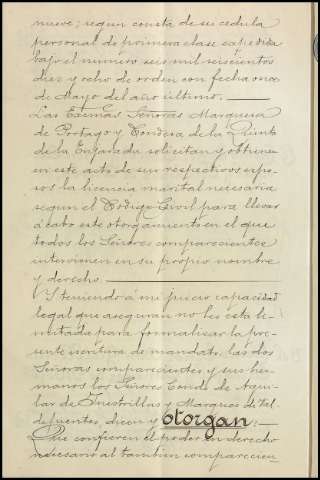 nueve; segun consta de su cedula
personal de primera clase expedida
bajo el numero seis mil seiscientos
diez y ocho de orden con fecha once
de Mayo del año último.
Las Exemas Señoras Marquesa
de Portago y Condesa de la Quinta
de la Enjarada solicitan y obtienen
en este acto de sus respectivos espo-
sos la licencia marital necesaria
segun el Codigo Civil para llevar
á cabo este otorgamiento en el que
todos los Señores comparecientes
intervienen en su propio nombre
y derecho.
Y teniendo á mi juicio capacidad
legal que aseguran no les está li-
mitada para formalizar la pre-
sente escritura de mandato, las dos
Señoras comparecientes y sus her-
manos los Señores Conde de Agui-
lar de Inestrillas y Marques de Val-
defuentes, dicen y otorgan:
Que confieren el poder en derecho
necesario al tambien comparecien-